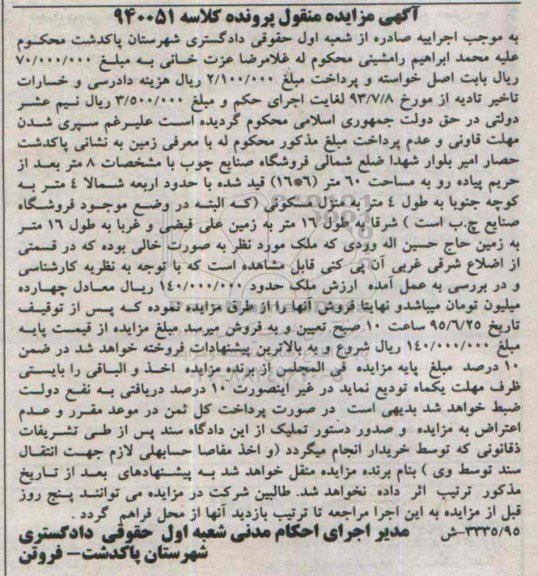 آگهی مزایده منقول پرونده کلاسه ۹۴۰۰۵۱
به موجب اجراییه صادره از شعبه اول حقوقی دادگستری شهرستان پاکدشت محکوم
علیه محمد ابراهیم رامشینی محکوم له غلامرضا عزت خانی به مبلغ ۷۰/۰۰۰/۰۰۰
ریال بابت اصل خواسته و پرداخت مبلغ ۲/۱۰۰/۰۰۰ ریال هزینه دادرسی و خسارات
تاخیر تادیه از مورخ ۹۳/۷/۸ لغایت اجرای حکم و مبلغ ۳/۵۰۰/۰۰۰ ریال نیم عشر
دولتی در حق دولت جمهوری اسلامی محکوم گردیده است علیرغم سپری شدن
مهلت قاونی و عدم پرداخت مبلغ مذکور محکوم له با معرفی زمین به نشانی پاکدشت
حصار امیر بلوار شهدا ضلع شمالی فروشگاه صنایع چوب با مشخصات ۸ متر بعد از
حریم پیاده رو به مساحت ۶۰ متر (۶*۱۶) قید شده با حدود اربعه شمالا ٤ متر به
کوچه جنوبا به طول ٤ متر به منزل مسکونی (که البته در وضع موجود فروشگاه
صنایع چ.ب است ) شرقا به طول ۱۶ متر به زمین علی فیضی و غربا به طول ۱۶ متر
به زمین حاج حسین اله وردی که ملک مورد نظر به صورت خالی بوده که در قسمتی
از اضلاع شرقی غربی آن پی کنی قابل مشاهده است که با توجه به نظریه کارشناسی
و در بررسی به عمل آمده ارزش ملک حدود ۱۴۰/۰۰۰/۰۰۰ ریال معادل چهارده
میلیون تومان میباشدو نهایتا فروش آنها را از طرق مزایده نموده که پس از توقیف
تاریخ ۹۵/۶/۲۵ ساعت ۱۰ صبح تعیین و به فروش میرسد مبلغ مزایده از قیمت پایه
مبلغ ۱۴۰/۰۰۰/۰۰۰ ریال شروع و به بالاترین پیشنهادات فروخته خواهد شد در ضمن
۱۰ درصد مبلغ پایه مزایده فی المجلس از برنده مزایده اخذ و الباقی را بایستی
ظرف مهلت یکماه تودیع نماید در غیر اینصورت ۱۰ درصد دریافتی به نفع دولت
ضبط خواهد شد بدیهی است در صورت پرداخت کل ثمن در موعد مقرر و عدم
اعتراض به مزایده و صدور دستور تملیک از این دادگاه سند پس از طی تشریفات
ذقانونی که توسط خریدار انجام میگردد (و اخذ مفاصا حسابهلی لازم جهت انتقال
سند توسط وی ) بنام برنده مزایده منقل خواهد شد به پیشنهادهای بعد از تاریخ
مذکور ترتیب اثر داده نخواهد شد. طالبین شرکت در مزایده می توانند پنج روز
قبل از مزایده به این اجرا مراجعه تا ترتیب بازدید آنها از محل فراهم گردد .
۳۳۳۵/۹۵-ش مدیر اجرای احکام مدنی شعبه اول حقوقی دادگستری
شهرستان پاکدشت- فروتن